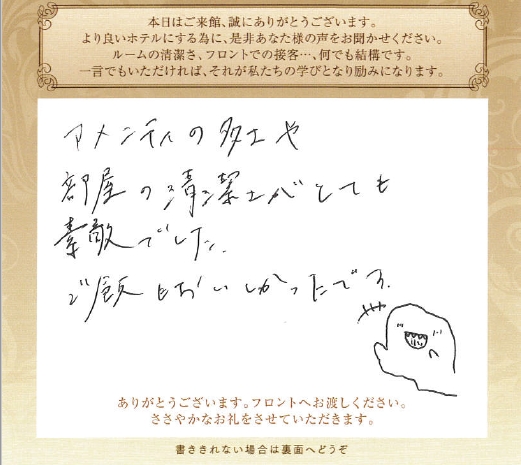 本日はご来館、誠にありがとうございます。
より良いホテルにする為に、是非あなた様の声をお聞かせください。
ルームの清潔さ、フロントでの接客…、何でも結構です。
一言でもいただければ、それが私たちの学びとなり励みになります。
アメニティの多さや
部屋の清潔さがとても
素敵でした。
ご飯もおいしかったです。
ありがとうございます。フロントへお渡しください。
ささやかなお礼をさせていただきます。
書ききれない場合は裏面へどうぞ